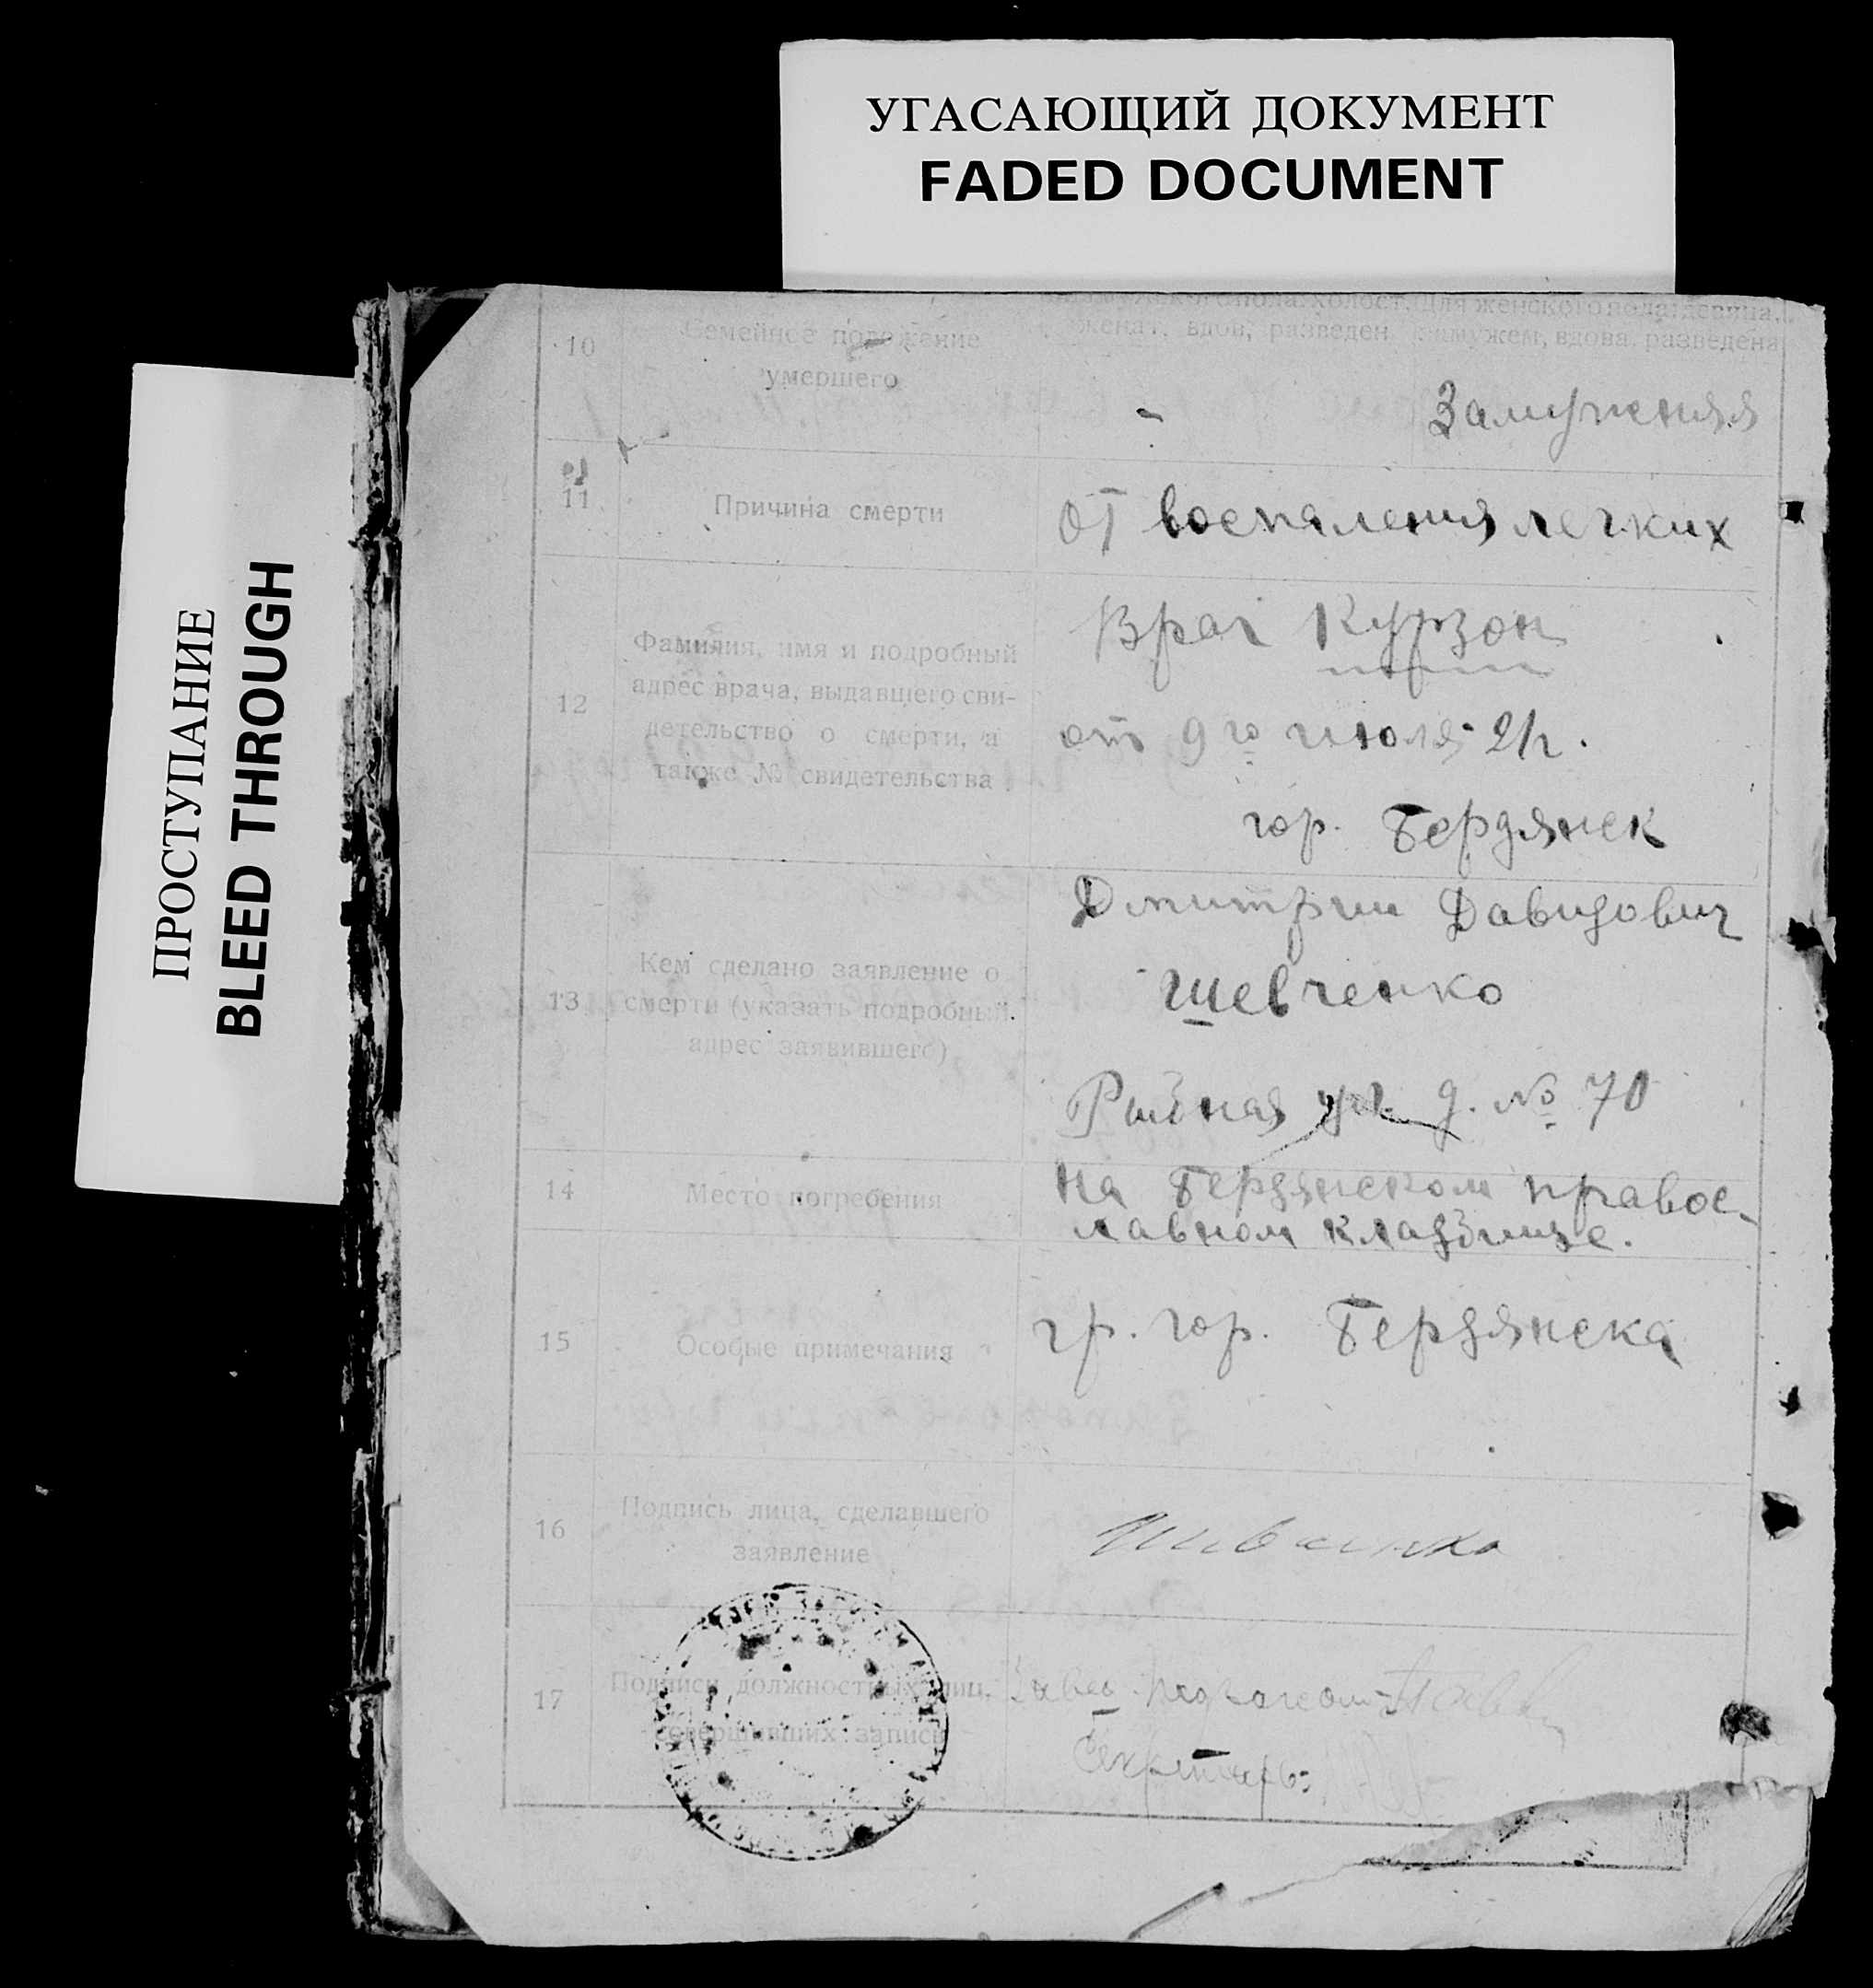 УГАСАЮЩИЙ ДОКУМЕНТ
FADED DOCUMENT
ПРОСТУПАНИЕ
BLEED THROUGH
10
Семейное положение
умершего
холост, Для женского пола: девица,
женат, вдов, разведен
замужем, вдова, разведена
Замужняя
11
Причина смерти
от воспаления легких
12
Фамилия, имя и подробный
адрес врача, выдавшего сви-
детельство о смерти, а
также № свидетельства
Врач Курзон
от 9го июля 21г.
гор. Бердянск
13
Кем сделано заявление о
смерти (указать подробный
адрес заявившего)
Дмитрий Давидович
Шевченко
Рыбная ул. д. № 70
14
Место погребения
на Бердянском правос-
лавном кладбище.
15
Особые примечания
гр. гор. Бердянска
16
Подпись лица, сделавшего
заявление
Шевченко
17
Подписи должностных лиц,
совершивших запись
Завед.
Секретарь: